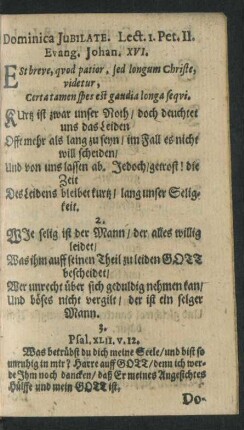 Dominica JUBILATE. Lect. 1. Pet. II.
Evang. Johan. XVI.
Est breve, qvod patior, sed longum Christe,
videtur,
Certa tamen spes est gaudia longa seqvi.
Kurtz ist zwar unser Noth/ doch deuchtet
uns das Leiden
Offt mehr als lang zu seyn/ im Fall es nicht
will scheiden/
Und von uns lassen ab. Jedoch/getrost! die
Zeit
Des Leidens bleibet kurtz/ lang unser Selig-
keit.
2.
Wie selig ist der Mann/ der alles willig
leidet/
Was ihm auff seinen Theil zu leiden GOTT
bescheidet/
Wer unrecht über sich geduldig nehmen kan/
Und böses nicht vergilt/ der ist ein selger
Mann.
3.
Psal. XLII. v. 12.
Was betrübst du dich meine Seele/ und bist so
unruhig in mir? Harre auff GOTT/ denn ich wer-
de Ihm noch dancken/ daß Er meines Angesichtes
Hülffe und mein GOTT ist.
Do-